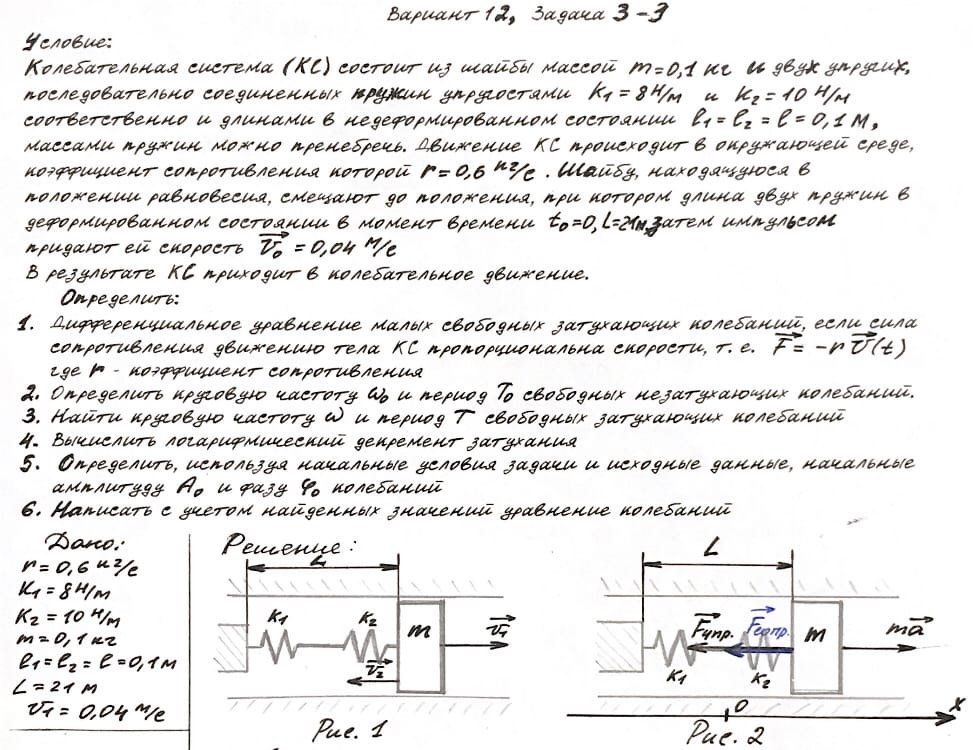 Вариант 12, Задача 3-3
Условие:
Колебательная система (КС) состоит из шайбы массой m=0,1 кг и двух упругих,
последовательно соединенных пружин упругостями K₁=8 Н/м и K₂=10 Н/м
соответственно и длинами в недеформированном состоянии l₁=l₂=l=0,1 м,
массами пружин можно пренебречь. Движение КС происходит в окружающей среде,
коэффициент сопротивления которой r=0,6 кг/с. Шайбу, находящуюся в
положении равновесия, смещают до положения, при котором длина двух пружин в
деформированном состоянии в момент времени t₀=0, L=21м, затем импульсом
придают ей скорость v₀=0,04 м/с
В результате КС приходит в колебательное движение.
Определить:
1. Дифференциальное уравнение малых свободных затухающих колебаний, если сила
сопротивления движению тела КС пропорциональна скорости, т.е. F = -r v(t)
где r - коэффициент сопротивления
2. Определить круговую частоту ω₀ и период T₀ свободных незатухающих колебаний.
3. Найти круговую частоту ω и период T свободных затухающих колебаний
4. Вычислить логарифмический декремент затухания
5. Определить, используя начальные условия задачи и исходные данные, начальные
амплитуду A₀ и фазу φ₀ колебаний
6. Написать с учетом найденных значений уравнение колебаний
Дано:
r=0,6 кг/с
K₁=8 Н/м
K₂=10 Н/м
m=0,1 кг
l₁=l₂=l=0,1 м
L=21 м
v₁=0,04 м/с
Решение:
L
K₁
K₂
m
v₁
v₂
Рис. 1
L
Fупр.
Fсопр.
m
ma
K₁
K₂
0
x
Рис. 2